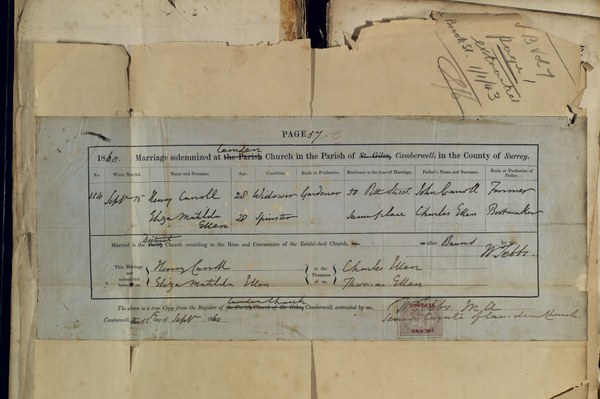 PAGE 57
1860. Marriage solemnized at the Parish Camden Church in the Parish of St. Giles, Camberwell, in the County of Surrey.
No. When Married. Name and Surname. Age. Condition. Rank or Profession. Residence at the time of Marriage. Father's Name and Surname. Rank or Profession of Father.
114 Sept 15 Henry Carroll 28 Widower Gardener 50 Pitt Street John Carroll Farmer
Eliza Matilda Ellen 28 Spinster same place Charles Ellen Bootmaker
Married in the District Church according to the Rites and Ceremonies of the Established Church, after Banns by me
W Tebbs.
This Marriage was solemnized between us
Henry Carroll
Eliza Matilda Ellen
in the Presence of us
Charles Ellen
Thomas Ellen
The above is a true Copy from the Register of the Parish Church of St. Giles, Camden Church Camberwell, extracted by me.
Camberwell, this 15th day of Sept 1860
W Tebbs. M.A
Senior Curate of Camden Church
INLAND